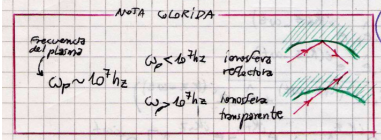 NOTA COLORIDA
Frecuencia
del plasma
ωp ~ 10⁷hz
ωp < 10⁷hz ionosfera
reflectora
ωp > 10⁷hz ionosfera
transparente